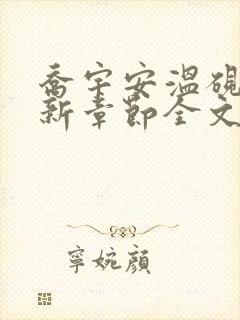 乔宇安温砚
新章节全文
寧婉顔